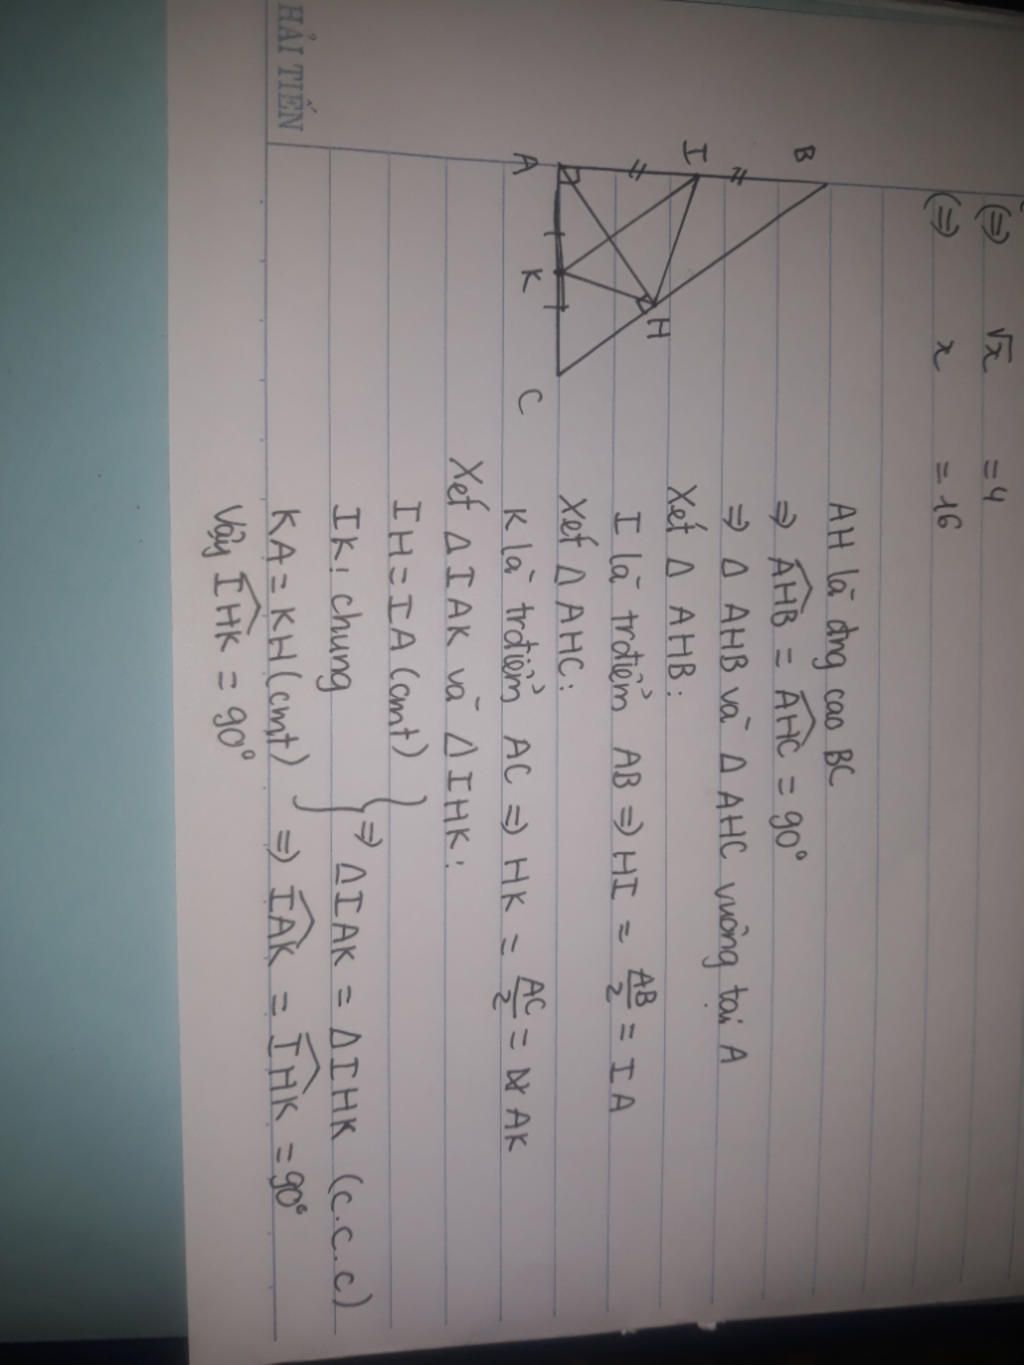 (⇒) √x = 4
(⇒) x = 16
B
I
H
A
K
C
AH là đng cao BC
⇒ \widehat{AHB} = \widehat{AHC} = 90°
⇒ Δ AHB và Δ AHC vuông tại A
Xét Δ AHB:
I là trđiểm AB ⇒ HI = AB/2 = IA
Xét Δ AHC:
K là trđiểm AC ⇒ HK = AC/2 = AK
Xét Δ IAK và Δ IHK:
IH = IA (cmt)
IK: chung } ⇒ ΔIAK = ΔIHK (c.c.c)
KA = KH (cmt) ⇒ \widehat{IAK} = \widehat{IHK} = 90°
Vậy \widehat{IHK} = 90°
HẢI TIẾN